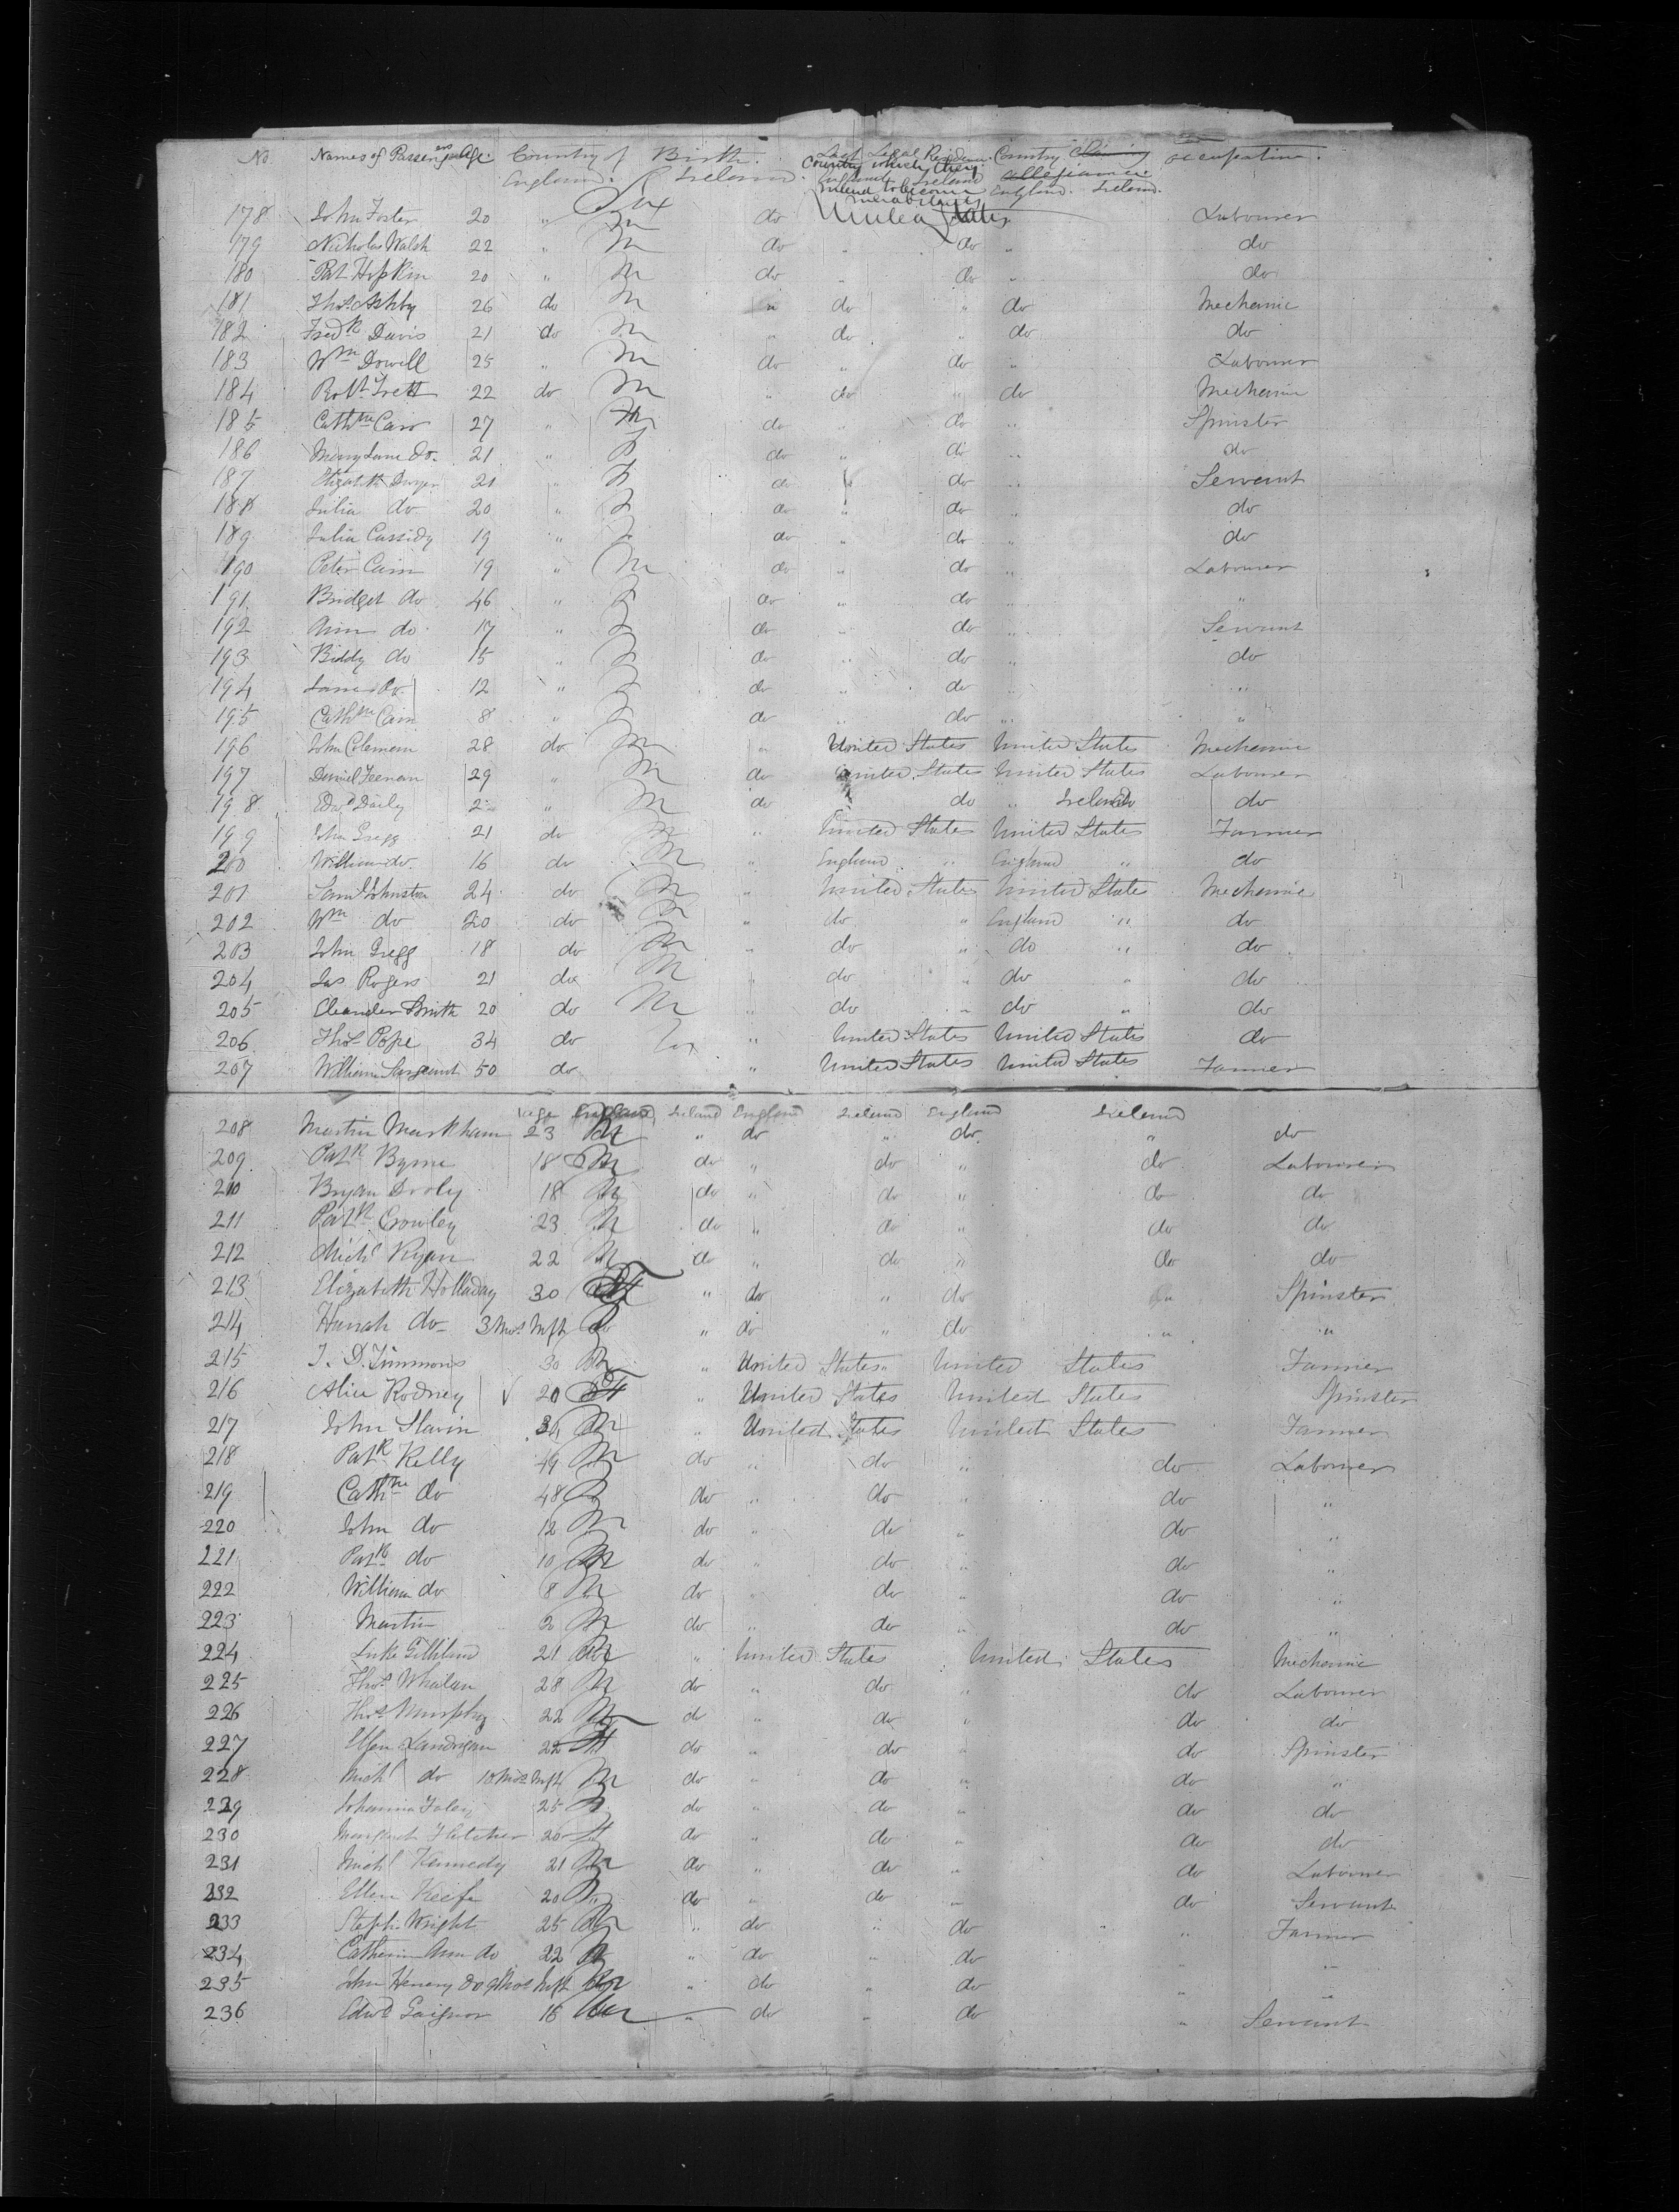 No. Names of Passengers Age. Country of Birth. Last Legal Residence. Country Claiming allegiance occupation.
England. Ireland. Country which they England Ireland England. Ireland.
intend to become inhabitants
Sex
178 John Foster 20 " M do United States Labourer
179 Nicholas Walsh 22 " M do " do " do
180 Pat Hopkin 20 " M do " do " do
181 Thos Ashby 26 do M " do " do Mechanic
182 Fredk Davis 21 do M " do " do do
183 Wm Dowell 25 " M do " do " Labourer
184 Robt Trett 22 do M " do " do Mechanic
185 Cathne Cain 27 " do " do " Spinster
186 Mary Jane do. 21 " F do " do " do
187 Elizabeth Dwyer 21 " F do " do " Servant
188 Julia do 20 " F do " do " do
189 Julia Cassidy 19 " F do " do " do
190 Peter Cain 19 " M do " do " Labourer
191 Bridget do 46 " F do " do " "
192 Ann do 17 " F do " do " Servant
193 Biddy do 15 " F do " do " do
194 do 12 " F do " do " "
195 Cathne Cain 8 " F do " do " "
196 John Coleman 28 do M " United States United States Mechanic
197 Daniel Feenan 29 " M do United States United States Labourer
198 Edwd Daily " M do do " Ireland do
199 John Gregg 21 do M " United States United States Farmer
200 William do 16 do M " England " England " do
201 Saml Johnston 24 do M " United States United States Mechanic
202 Wm do 20 do M " do " England " do
203 John Gregg 18 do M " do " do " do
204 Jas Rogers 21 do M " do " do " do
205 Cleander Smith 20 do M " do " do " do
206 Thos Pope 34 do " United States United States do
207 William Sargeant 50 do " United States United States Farmer
Age England Ireland England Ireland England Ireland
208 Martin Markham 23 M " do " do " do
209 Patk Byrne 18 M do " do " do Labourer
210 Bryan Dooly 18 M do " do " do do
211 Patk Crowley 23 M do " do " do do
212 Michl Ryan 22 M do " do " do do
213 Elizabeth Holladay 30 F " do " do " Spinster
214 Hanah do 3 Mos Inft " do " do " "
215 J. D. Timmons 30 M " United States " United States Farmer
216 Alice Rodney 20 F " United States United States Spinster
217 John Slavin M " United States United States Farmer
218 Patk Kelly 49 M do " do " do Labourer
219 Cathne do 48 do " do " do "
220 John do 12 M do " do " do "
221 Patk do 10 M do " do " do "
222 William do 8 M do " do " do "
223 Martin 2 M do " do " do "
224 Luke Gilliland 21 M " United States United States Mechanic
225 Thos Whalan 28 M do " do " do Labourer
226 Thos Murphy 22 M do " do " do do
227 Ellen Landrigan 22 F do " do " do Spinster
228 Michl do 10 Mos Inft M do " do " do "
229 Johanna Foley 25 do " do " do do
230 Margaret Fletcher 20 F do " do " do do
231 Michl Kennedy 21 M do " do " do Labourer
232 Ellen Keefe 20 do " do " do Servant
233 Steph Wright 25 M " do " do " Farmer
234 Catherine Ann do 22 " do " do " "
235 John Henery do 9 Mos Inft " do " do " "
236 Edwd Gaignor 16 M " do " do " Servant